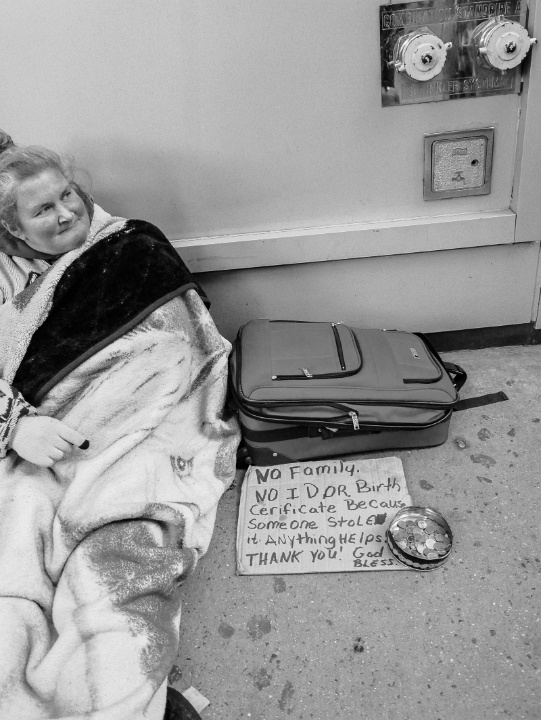 COMBINATION STANDPIPE A
SPRINKLER SYSTEM
NO Family.
NO I D OR Birth
Cerificate Becaus
Someone STOLE
it. ANything HELPS
THANK YOU! God
BLESS.